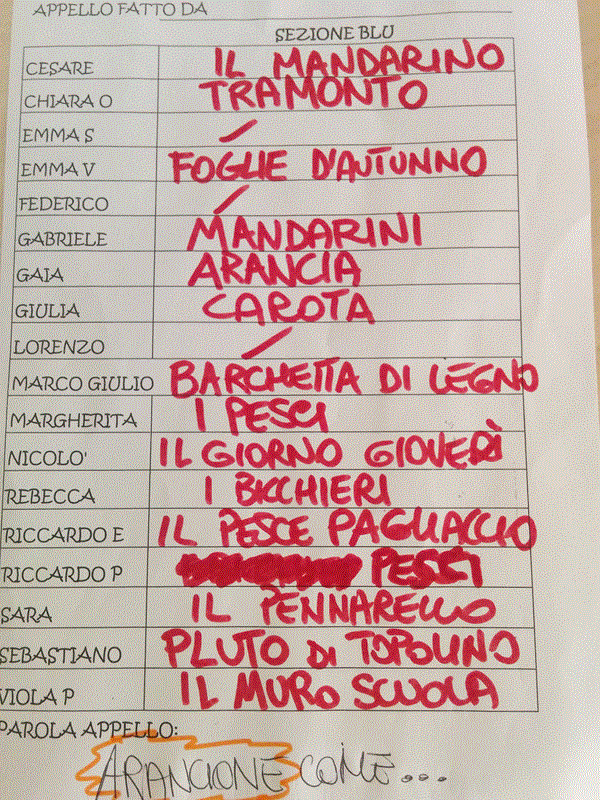 APPELLO FATTO DA
SEZIONE BLU
CESARE IL MANDARINO
CHIARA O TRAMONTO
EMMA S /
EMMA V FOGLIE D'AUTUNNO
FEDERICO /
GABRIELE MANDARINI
GAIA ARANCIA
GIULIA CAROTA
LORENZO /
MARCO GIULIO BARCHETTA DI LEGNO
MARGHERITA I PESCI
NICOLO' IL GIORNO GIOVEDÌ
REBECCA I BICCHIERI
RICCARDO E IL PESCE PAGLIACCIO
RICCARDO P PESCI
SARA IL PENNARELLO
SEBASTIANO PLUTO DI TOPOLINO
VIOLA P IL MURO SCUOLA
PAROLA APPELLO:
ARANCIONE COME...